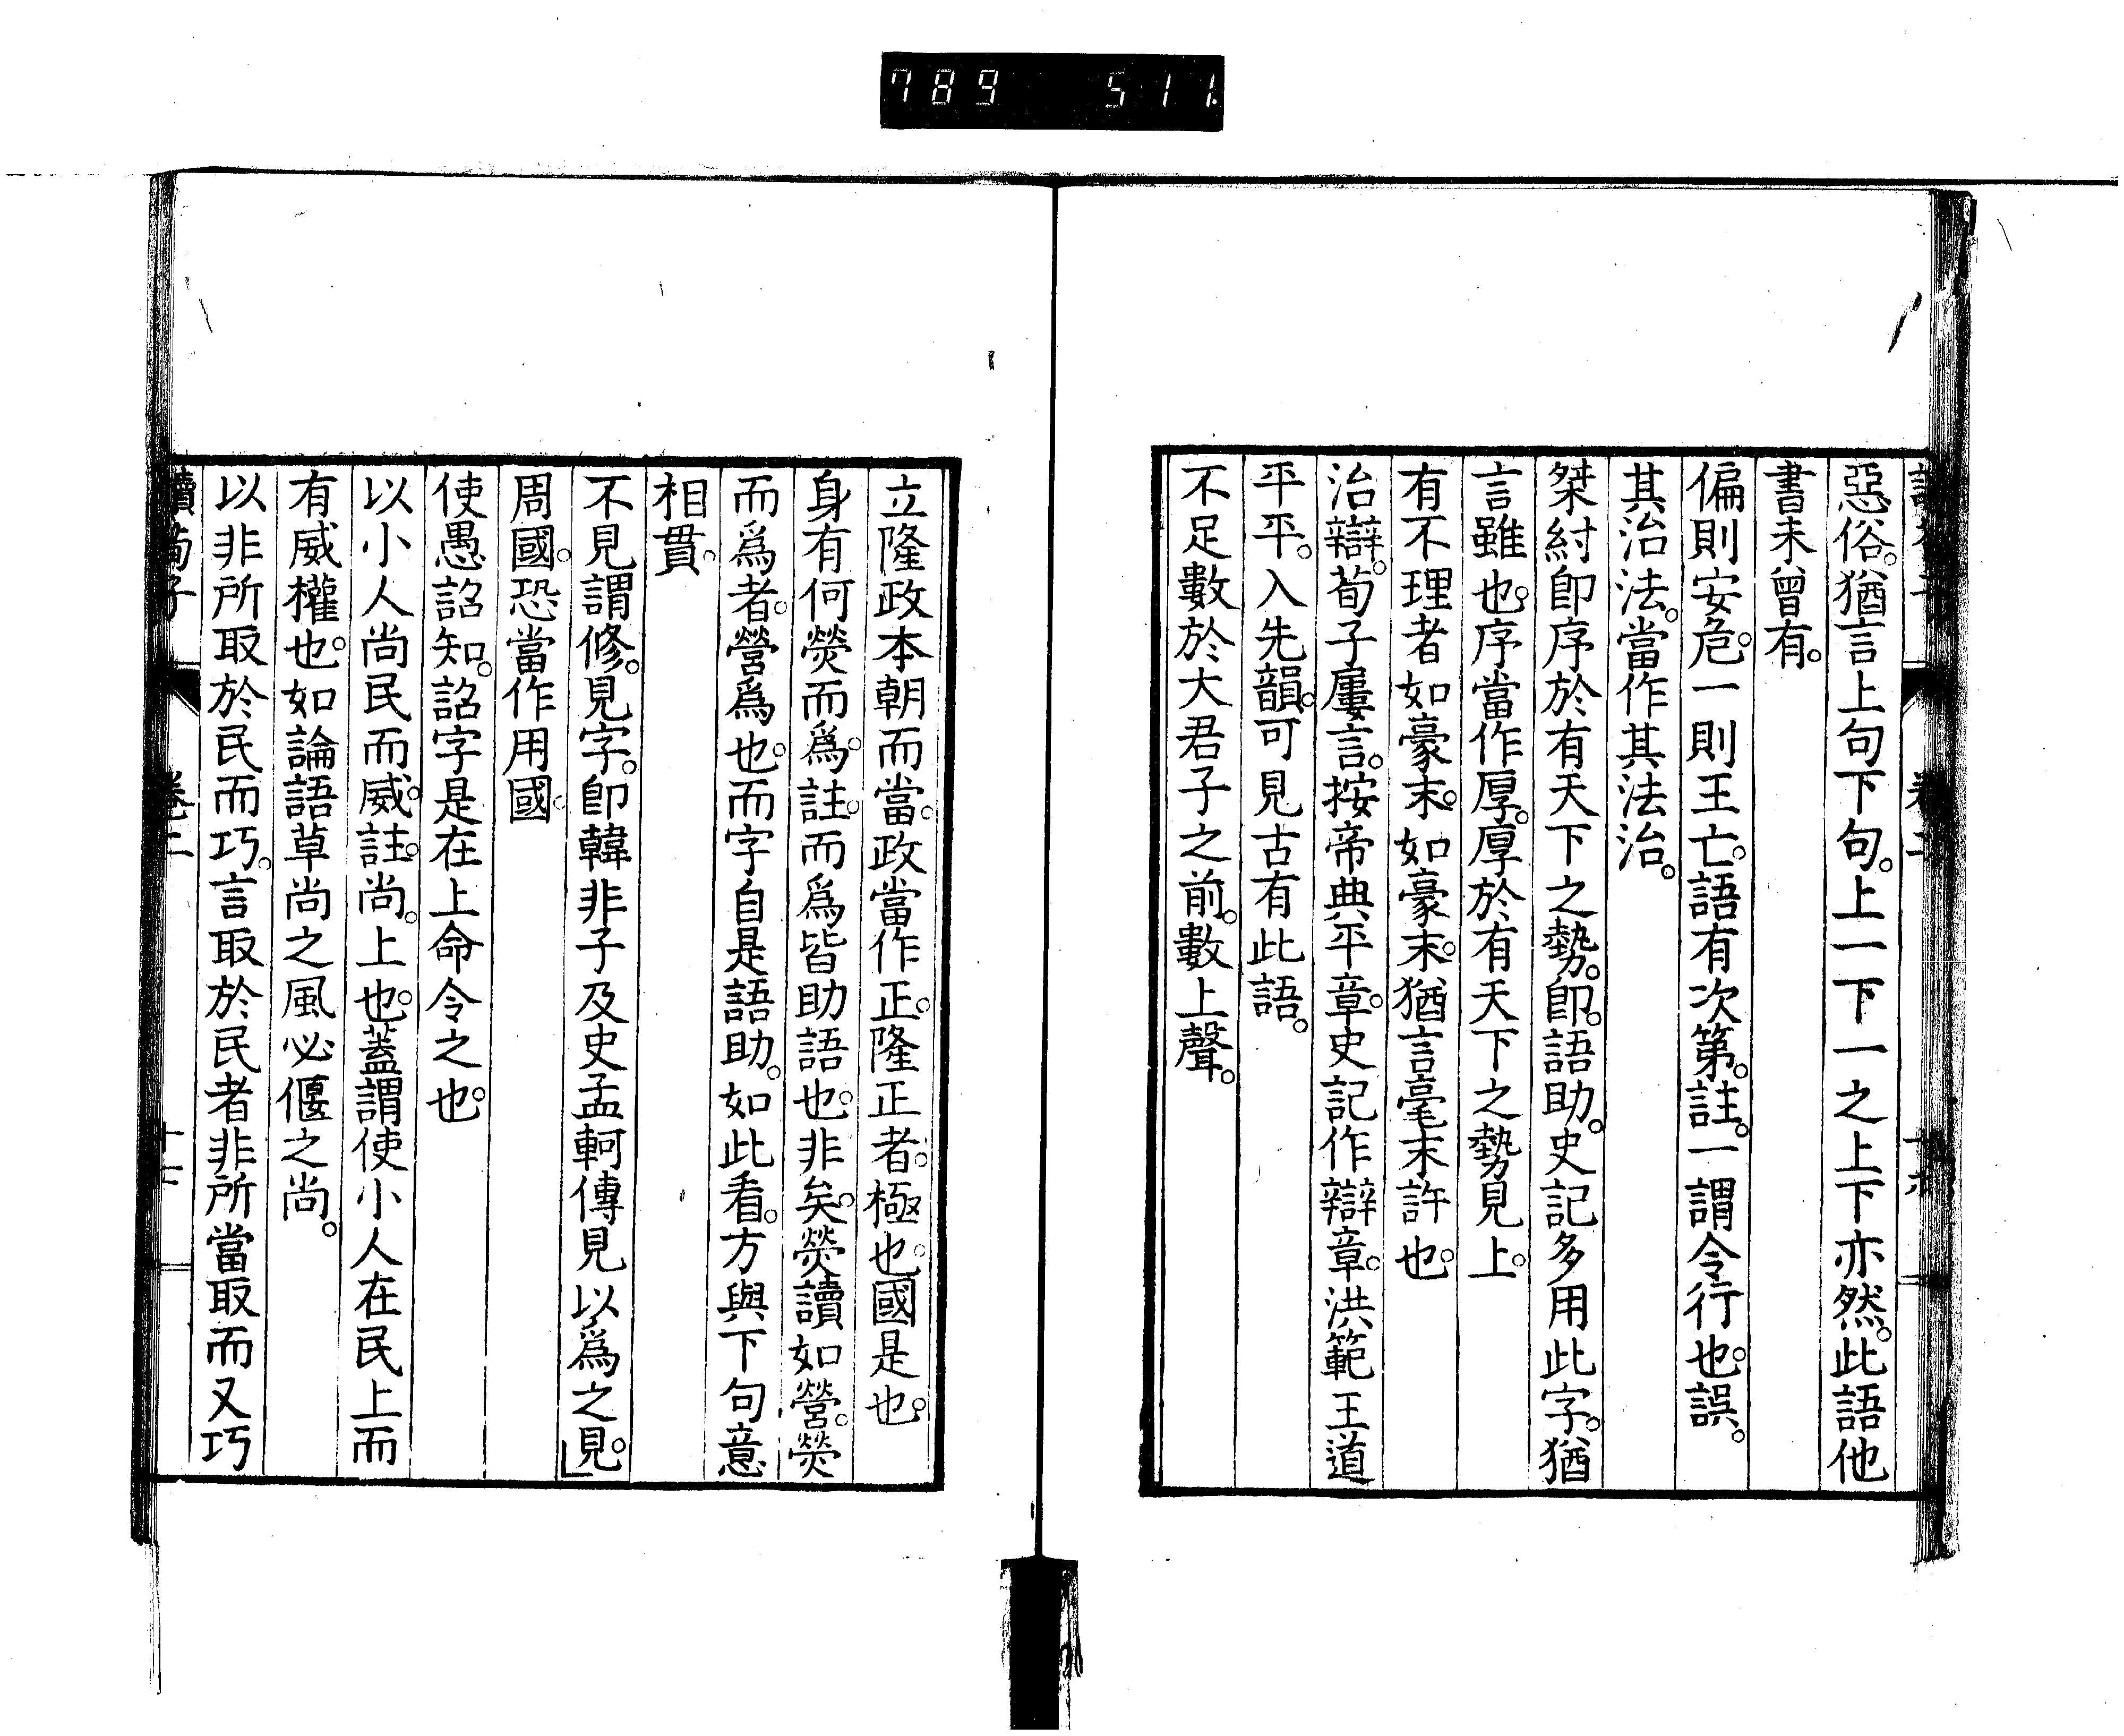 789 511
惡俗。猶言上句下句。上一下一之上下亦然。此語他
書未曾有。
偏則安危。一則王亡。語有次第。註。一謂令行也。誤。
其治法。當作其法治。
桀紂卽序於有天下之勢。卽。語助。史記多用此字。猶
言雖也。序當作厚。厚於有天下之勢見上。
有不理者如豪末。如豪末。猶言毫末許也。
治辯。荀子屢言。按帝典平章。史記作辯章。洪範王道
平平。入先韻。可見古有此語。
不足數於大君子之前。數上聲。
立隆政本朝而當。政當作正。隆正者。極也。國是也。
身有何熒而爲。註。而爲皆助語也。非矣。熒讀如營。熒
而爲者。營爲也。而字自是語助。如此看。方與下句意
相貫。
不見謂修。見字。卽韓非子及史孟軻傳見以爲之見。」
周國。恐當作用國。
使愚詔知。詔字是在上命令之也。
以小人尚民而威。註。尚。上也。蓋謂使小人在民上而
有威權也。如論語草尚之風必偃之尚。
以非所取於民而巧。言取於民者非所當取而又巧
讀荀子 卷二